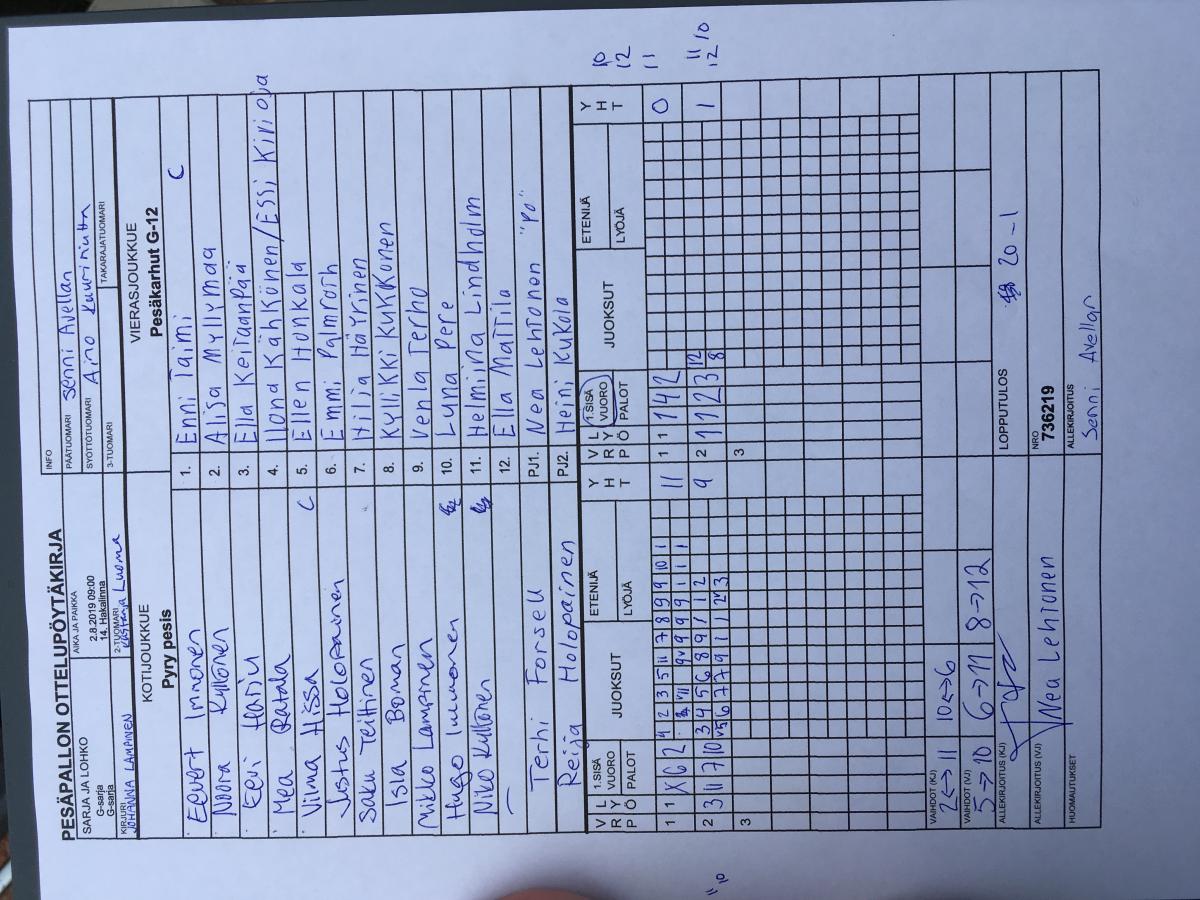 PESÄPALLON OTTELUPÖYTÄKIRJA
INFO
SARJA JA LOHKO
G-sarja
G-sarja
AIKA JA PAIKKA
2.8.2019 09:00
14. Hakalinna
PÄÄTUOMARI Senni Avellan
SYÖTTÖTUOMARI Aino Kuuriniutta
KIRJURI
JOHANNA LAMPINEN
2-TUOMARI
Luoma
3-TUOMARI
TAKARAJATUOMARI
KOTIJOUKKUE
Pyry pesis
VIERASJOUKKUE
Pesäkarhut G-12
Eevert Immonen 1. Enni Taimi C
Noora Kyllönen 2. Alisa Myllymaa
Eevi Harju 3. Ella Keitaanpää
Mea Ratala 4. Ilona Kähkönen/Essi Kirioja
Vilma Hissa C 5. Ellen Honkala
Justus Holopainen 6. Emmi Palmroth
Saku Teittinen 7. Hilja Häyrinen
Isla Boman 8. Kyllikki Kukkonen
Mikko Lampinen 9. Venla Terho
Hugo Immonen 10. Luna Pere
Niko Kyllönen 11. Helmiina Lindholm
— 12. Ella Mattila
Terhi Forsell PJ1. Nea Lehtonen "Po"
Reija Holopainen PJ2. Heini Kukola
V L
R Y
P Ö
1.SISÄ
VUORO
PALOT
JUOKSUT
ETENIJÄ
LYÖJÄ
Y
H
T
V L
R Y
P Ö
1.SISÄ
VUORO
PALOT
JUOKSUT
ETENIJÄ
LYÖJÄ
Y
H
T
10
12
11
1 1 X 6 2 4 2 3 5 11 7 8 9 9 10 1 11
9 9 9 1 1 1
1 1 1 4 2 0
2 3 11 7 10 3 4 5 6 8 9 1 1 2 9
6 7 7 9 1 1 2 3
2 1 1 2 3 12 1
8
11 10
12
3
3
11 10
VAIHDOT (KJ)
2<->11 10<->6
VAIHDOT (VJ)
5->10 6->11 8->12
ALLEKIRJOITUS (KJ)
LOPPUTULOS 20 - 1
ALLEKIRJOITUS (VJ)
Nea Lehtonen
NRO
736219
HUOMAUTUKSET
ALLEKIRJOITUS
Senni Avellan